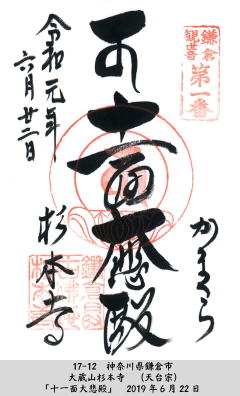 鎌倉
観世音
第一番
かまくら
十一面大悲殿
杉本寺
令和元年
六月廿二日
17-12 神奈川県鎌倉市
大蔵山杉本寺 (天台宗)
「十一面大悲殿」 2019年6月22日